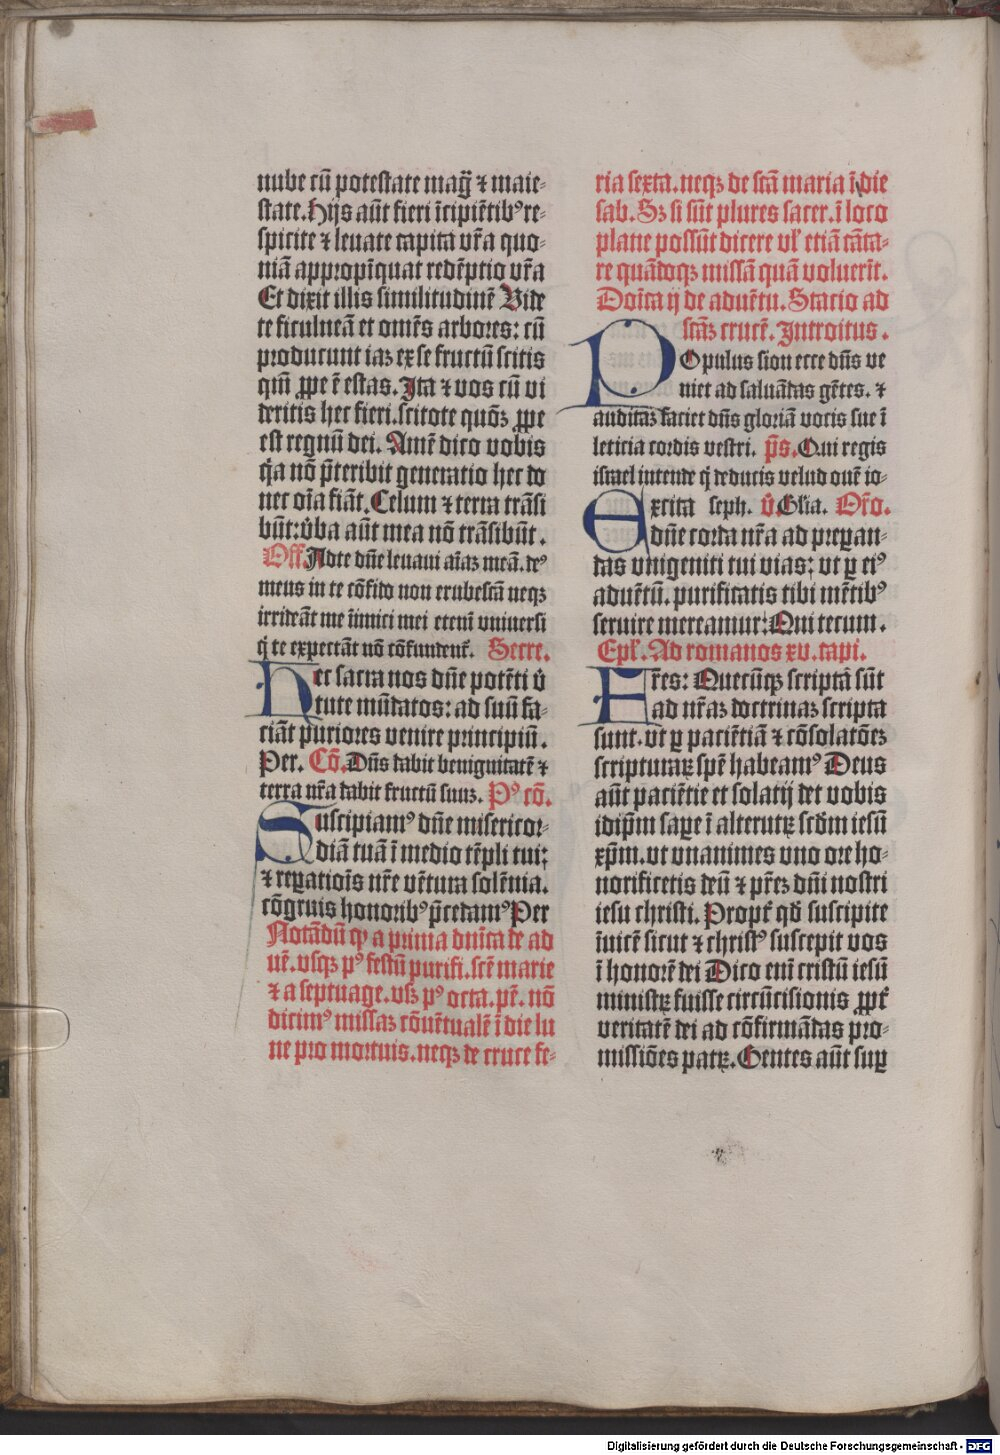 nube cū potestate mag̃ ⁊ maie⸗
state. Hijs aūt fieri īcipiētibꝰ re⸗
spicite ⁊ leuate capita vr̄a quo⸗
niā appropīquat redēptio vr̄a
Et dixit illis similitudinē Vide
te ficulneā et omēs arbores: cū
producunt iaꝫ ex se fructū scitis
qm̄ ꝓpe ē estas. Ita ⁊ vos cū vi
deritis hec fieri. scitote quōꝫ ꝓpe
est regnū dei. Amē dico vobis
q̄a nō p̄teribit generatio hec do
nec oīa fiāt. Celum ⁊ terra trāsi
būt: v̄ba aūt mea nō trāsibūt.
Off. Adte dn̄e leuaui aīaꝫ meā. deꝰ
meus in te cōfido non erubescā neqꝫ
irrideāt me īimici mei etenī vniuersi
q̄ te expectāt nō cōfundent᷑. Secre.
Hec sacra nos dn̄e potēti v̄
tute mūdatos: ad suū fa⸗
ciāt puriores venire principiū.
Per. Cō. Dn̄s dabit benignitatē ⁊
terra nr̄a dabit fructū suuꝫ. Pꝰ cō.
Suscipiamꝰ dn̄e misericor⸗
diā tuā ī medio tēpli tui:
⁊ reꝑatiois nr̄e vētura solēnia.
cōgruis honoribꝰ p̄cedamꝰ Per
Notādū ꝙ a prima dn̄ica de ad
uē. vsqꝫ pꝰ festū purifi. scē marie
⁊ a septuage. vsꝫ pꝰ octa. pē. nō
dicimꝰ missaꝫ cōuētualē ī die lu
ne pro mortuis. neqꝫ de cruce fe⸗
ria sexta. neqꝫ de scā maria ī die
sab. Sꝫ si sūt plures sacer. ī loco
plane possūt dicere vl᷑ etiā cāta⸗
re quādoqꝫ missā quā voluerīt.
Doīca ij de aduētu. Stacio ad
scāꝫ crucē. Introitus.
POpulus sion ecce dn̄s ve
niet ad saluādas gētes. ⁊
auditāꝫ faciet dn̄s gloriā vocis sue ī
leticia cordis vestri. p̄s. Qui regis
israel intende q̄ deducis velud ouē io⸗
Excita seph. v̄. Glia. Or̄o.
dn̄e corda nr̄a ad preꝑan⸗
das vnigeniti tui vias: vt ꝑ eiꝰ
aduētū. purificatis tibi mētibꝰ
seruire mereamur: Qui tecum.
Epl᷑. Ad romanos xv. capi.
Fr̄es: Quecūqꝫ scripta sūt
ad nr̄aꝫ doctrinaꝫ scripta
sunt. vt ꝑ paciētiā ⁊ cōsolatōeꝫ
scripturaꝝ spē habeamꝰ Deus
aūt paciētie et solatij det vobis
idip̄m saꝑe ī alterutꝝ scd̄m iesū
xp̄m. vt vnanimes vno ore ho⸗
norificetis deū ⁊ pr̄eꝫ dn̄i nostri
iesu christi. Propt᷑ qd̄ suscipite
īuicē sicut ⁊ christꝰ suscepit vos
ī honorē dei Dico enī cristū iesū
ministꝝ fuisse circūcisionis ꝓpt᷑
veritatē dei ad cōfirmādas pro⸗
missiōes patꝝ. Gentes aūt suꝑ
Digitalisierung gefördert durch die Deutsche Forschungsgemeinschaft - DFG